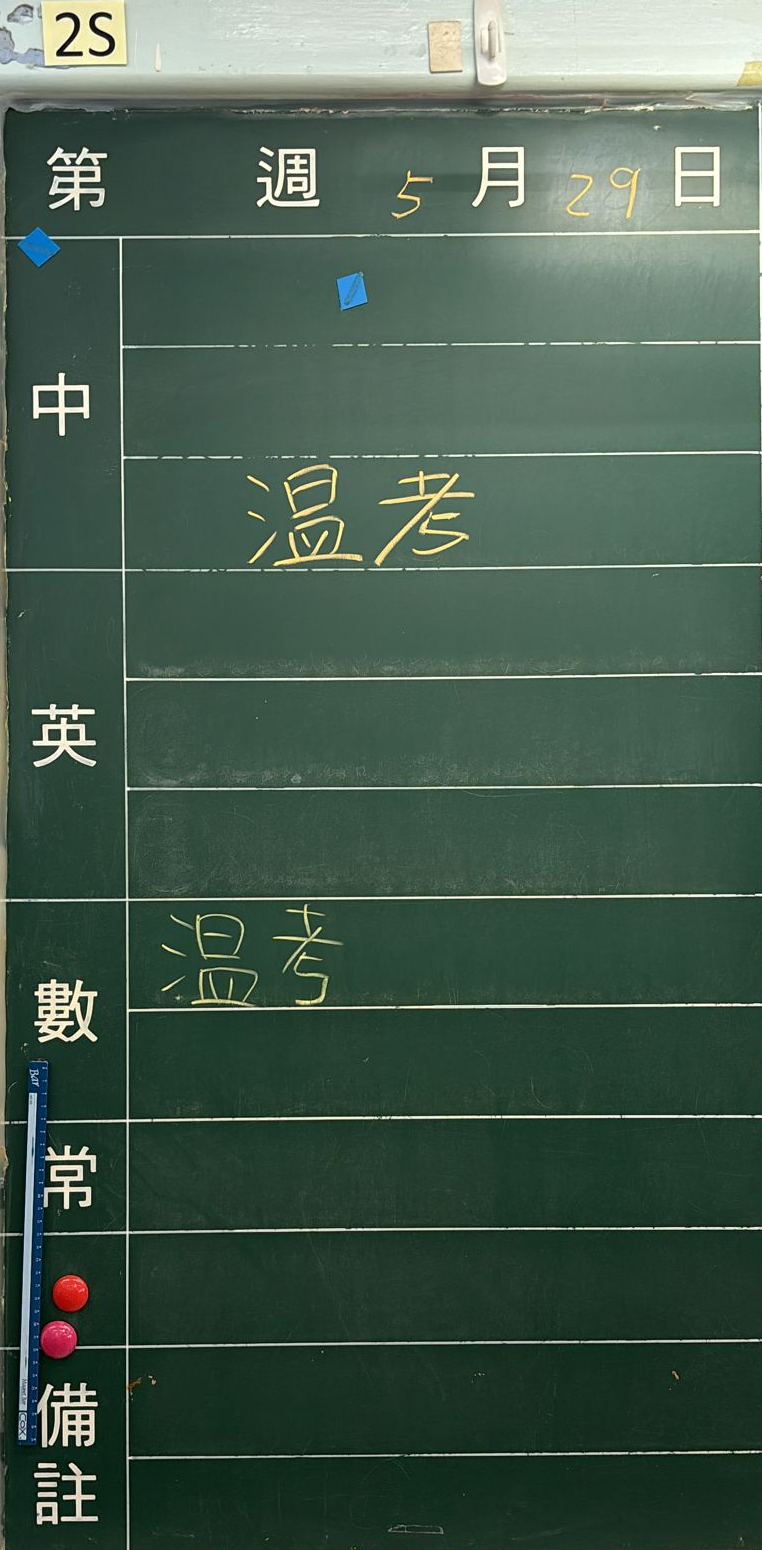 2S
第 週 5 月 29 日
中
温考
英
數
温考
常
備註
Bar
COX